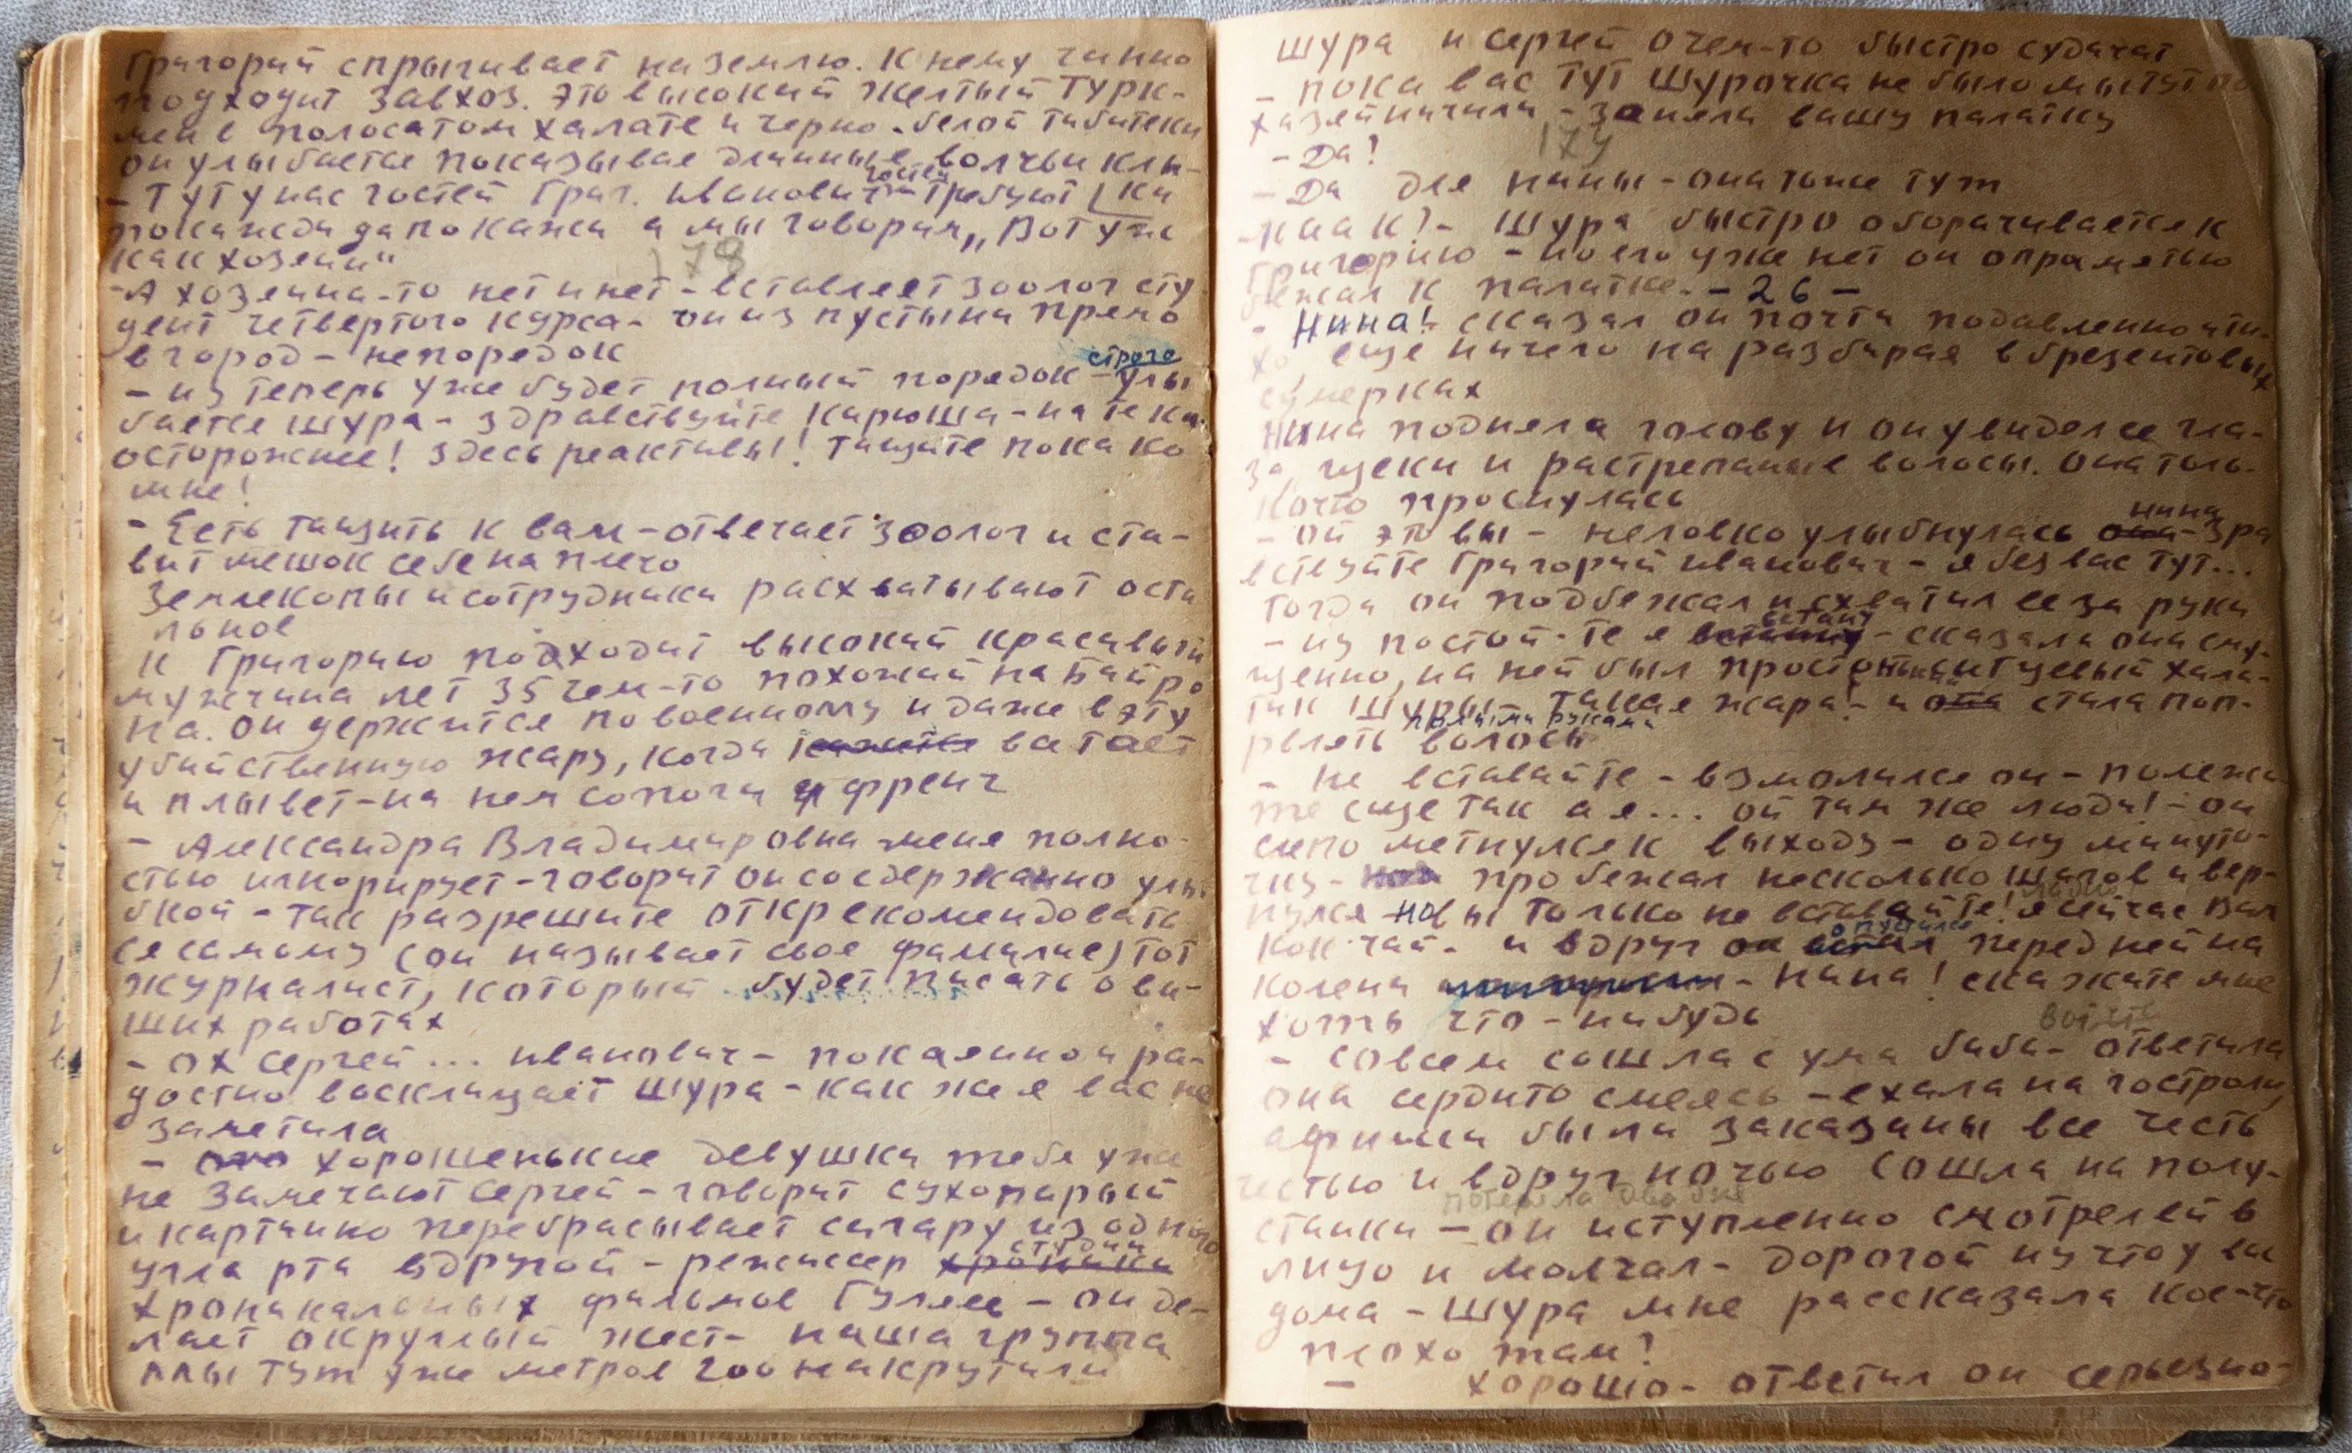 Григорий спрыгивает на землю. К нему чинно
подходит завхоз. Это высокий желтый турк-
мен в полосатом халате и черно-белой тибитеки
он улыбается показывае длинные волчьи клы-
- Тут у нас гостей Григ. Иванович - требуют ки
гостей
покажи да покажи а мы говорим „Вот уже
как хозяин"
178
- А хозяина-то нет и нет - вставляет зоолог сту
дент четвертого курса - он из пустыни прямо
в город - непорядок
строго
- ну теперь уже будет полный порядок - улы
бается Шура - здравствуйте Карюша - на те ка
осторожнее! Здесь реактивы! Тащите пока ко
мне!
- Есть тащить к вам - отвечает зоолог и ста-
вит мешок себе на плечо
Землекопы и сотрудники расхватывают оста
льное
К Григорию подходит высокий красивый
мужчина лет 35 чем-то похожий на Байро
на. Он держится по военному и даже в эту
убийственную жару, когда кажется ва тает
и плывет - на нем сапоги и френч
- Александра Владимировна меня полно-
стью игнорирует - говорит он со сдержанно улы
бкой - так разрешите откреκомендовать
ся самому (он называет свое фамилие) тот
журналист, который будет писать о ва-
ших работах
- Ох Сергей... Иванович - покаянно и ра-
достно восклицает Шура - как же я вас не
заметила
- хорошенькие девушки тебя уже
не замечают Сергей - говорит сухопарый
и картинно перебрасывает сигару из одного
студии
угла рта в другой - режиссер хроники
хроникальных фильмов Гуляев - он де-
лает округлый жест - наша группа
мы тут уже метров 200 накрутили
Шура и Сергей о чем-то быстро судачат
- пока вас тут Шурочка не было мы тут по
хозяйничали - заняли вашу палатку
179
- Да?
- Да для Нины - она тоже тут
- Каак? - Шура быстро оборачивается к
Григорию - но его уже нет он опрометью
бежал к палатке. - 26 -
- Нина! сказал он почти подавленно и ти-
хо еще ничего на разбирая в брезентовых
сумерках
Нина подняла голову и он увидел ее гла-
за, щеки и растрепаные волосы. Она толь-
ко что проснулась
нина
- Ой это вы - неловко улыбнулась она - Здра
вствуйте Григорий Иванович - я без вас тут...
Тогда он подбежал и схватил ее за руки
встану
- Ну постой-те я встану - сказала она сму-
щенно, на ней был простенький ситцевый хала-
тик Шуры - такая жара! - и она стала поп-
голыми руками
рвлять волосы
- Не вставайте - взмолился он - полежи
те еще так а я... Ой там же люди! - он
слепо метнулся к выходу - одну минуто-
чку - пробежал несколько шагов и вер-
нулся но вы только не вставайте! я сейчас вам
опустился
кок-чай - и вдруг он встал перед ней на
колени - Нина! скажите мне
хоть что-нибудь
- Совсем сошла с ума баба - ответила
она сердито смеясь - ехала на гастроли,
афиши были заказаны все честь
честью и вдруг ночью сошла на полу-
потеряла два дня
станки - он иступленно смотрел ей в
лицо и молчал - дорогой ну что у вас
дома - Шура мне рассказала кое-что
плохо там?
- хорошо - ответил он серьезно-